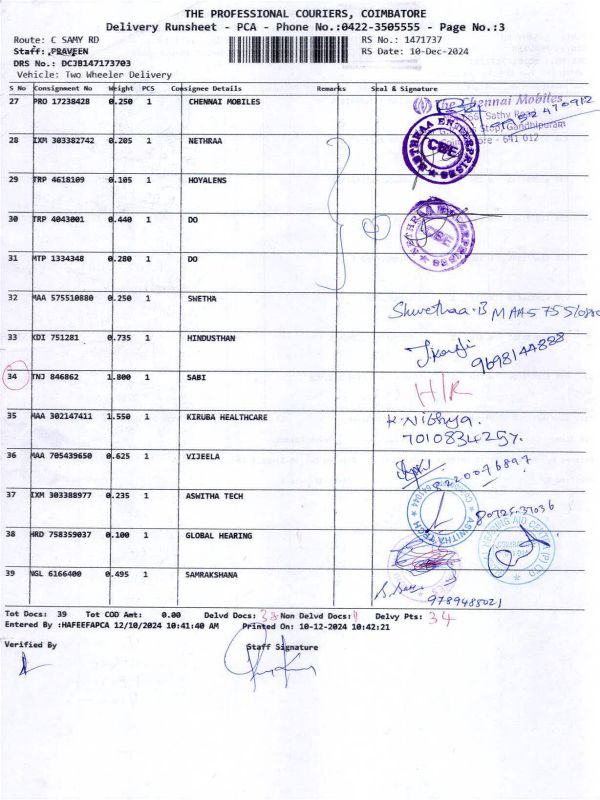 THE PROFESSIONAL COURIERS, COIMBATORE
Delivery Runsheet - PCA - Phone No.:0422-3505555 - Page No.:3
Route: C SAMY RD RS No.: 1471737
Staff: PRAVEEN RS Date: 10-Dec-2024
DRS No.: DCJB147173703
Vehicle: Two Wheeler Delivery
S No Consignment No Weight PCS Consignee Details Remarks Seal & Signature
27 PRO 17238428 0.250 1 CHENNAI MOBILES The Chennai Mobiles
Sathy Road
Stop, Gandhipuram
28 IXM 303382742 0.205 1 NETHRAA - 641 012
NETHRAA ENTERPRISES CBE
29 TRP 4618109 0.105 1 HOYALENS
30 TRP 4043001 0.440 1 DO
NETHRAA ENTERPRISES CBE
31 MTP 1334348 0.280 1 DO
32 MAA 575510880 0.250 1 SWETHA Shwethaa.B MAA575510880
33 KDI 751281 0.735 1 HINDUSTHAN 9698144888
34 TNJ 846862 1.800 1 SABI H/R
35 MAA 302147411 1.550 1 KIRUBA HEALTHCARE K.Nithya.
7010834257.
36 MAA 705439650 0.625 1 VIJEELA 8220076897
37 IXM 303388977 0.235 1 ASWITHA TECH ASWITHA TECH
38 HRD 758359037 0.100 1 GLOBAL HEARING
39 NGL 6166400 0.495 1 SAMRAKSHANA 9789488021
Tot Docs: 39 Tot COD Amt: 0.00 Delvd Docs: 38 Non Delvd Docs: 1 Delvy Pts: 34
Entered By :HAFEEFAPCA 12/10/2024 10:41:40 AM Printed On: 10-12-2024 10:42:21
Verified By Staff Signature